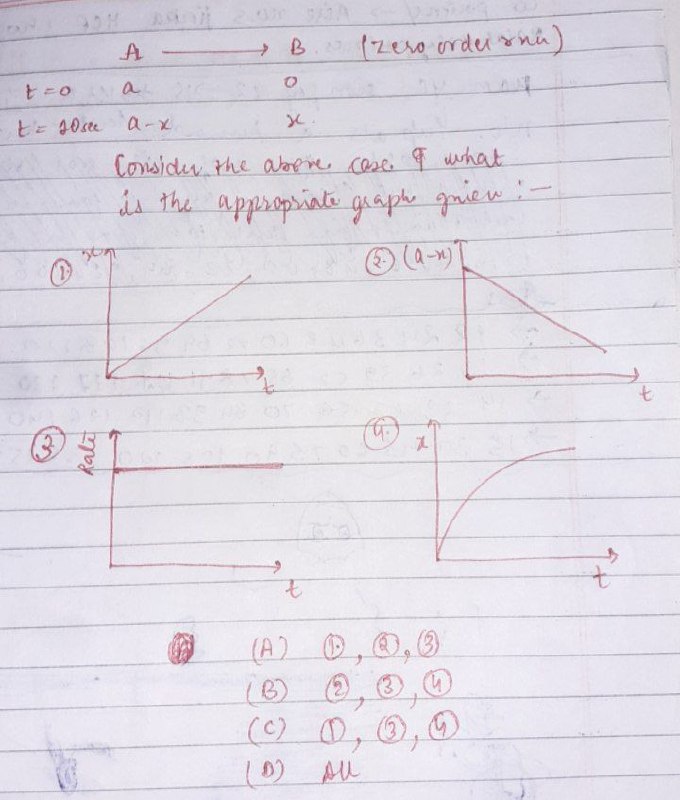 A ⟶ B (Zero order rxn)
t=0 a 0
t=20sec a-x x
Consider the above case & what
is the appropriate graph given :-
① x t
② (a-x) t
③ Rate t
④ x t
(A) ①, ②, ③
(B) ②, ③, ④
(C) ①, ③, ④
(D) All